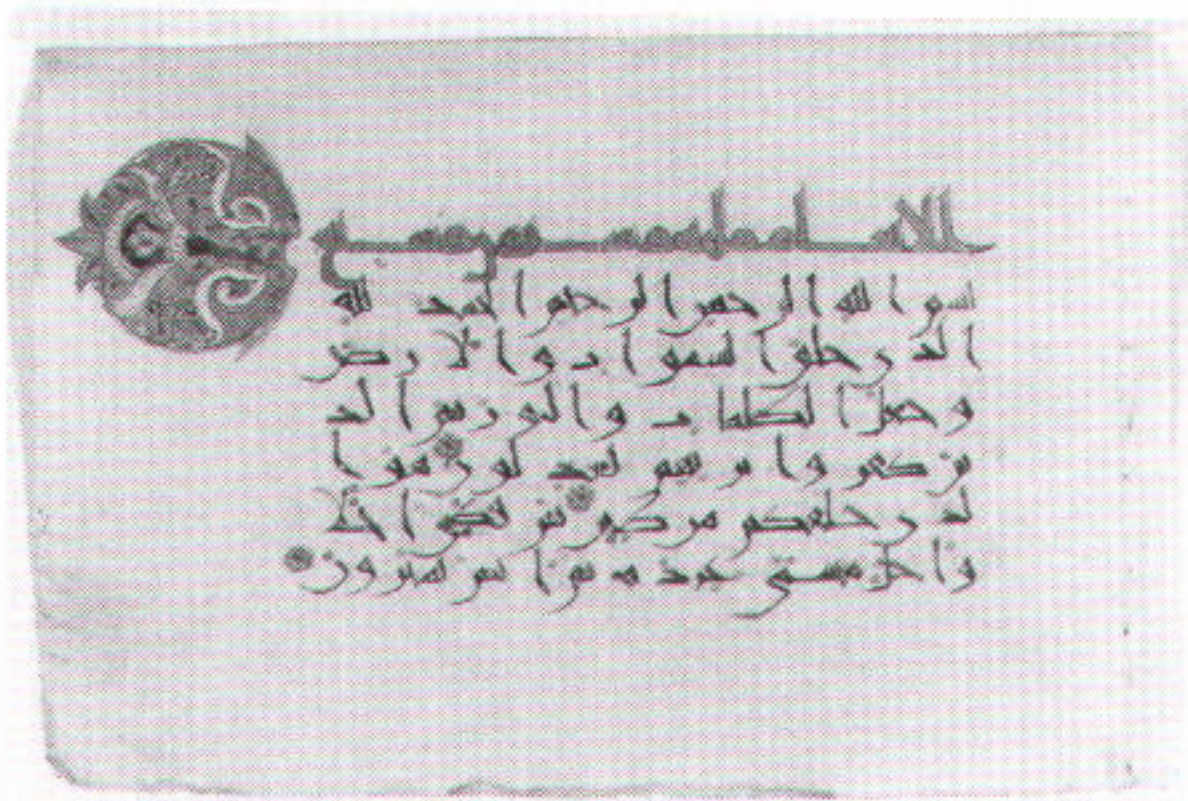 بسم الله الرحمن الرحيم الحمد لله
الذي خلق السموات والارض
وجعل الظلمات والنور ثم الذ
ين كفروا بربهم يعدلون هو ا
لذي خلقكم من طين ثم قضى اجلا
واجل مسمى عنده ثم انتم تمترون